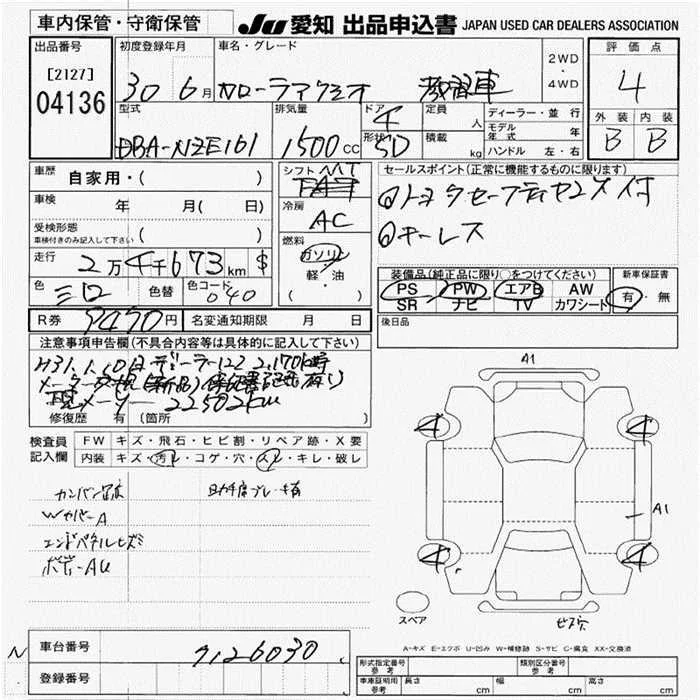 車内保管・守衛保管
JU 愛知 出品申込書 JAPAN USED CAR DEALERS ASSOCIATION
出品番号
[2127]
04136
初度登録年月
30 6月
車名・グレード
カローラアクシオ 教習車
2WD
・
4WD
評価点
4
外装 内装
B B
型式
DBA-NZE161
排気量
1500cc
ドア 4
形状 5D
定員 人
積載 kg
ディーラー・並行
モデル年式 年
ハンドル 左・右
車歴 自家用・( )
車検 年 月( 日)
受検形態
車検付きのみ記入して下さい ( )
走行 2万4千673km $
色 シロ 色替 色コード 040
シフト MT
冷房 AC
燃料
ガソリン
軽・油
( )
セールスポイント(正常に機能するものに限ります)
①トヨタセーフティセンス付
②キーレス
装備品(純正品に限り○をつけてください)
PS PW エアB AW
SR ナビ TV カワシート
新車保証書
有・無
R券 9470円 名変通知期限 月 日
後日品
注意事項申告欄(不具合内容等は具体的に記入して下さい)
H31.1.10日 ディーラーにて 2,170km時
メーター交換(新品)保証書記載有り
現メーター 22502km
修復歴 有 (箇所 )
検査員記入欄
FW キズ・飛石・ヒビ割・リペア跡・X要
内装 キズ・汚レ・コゲ・穴・スレ・キレ・破レ
カンバン跡
Wカバー A
エンドパネルヒズミ
ボデーAU
助手席ブレーキ有
A1
4 4
A1
4 4
スペア
A-キズ E-エクボ U-凹み W-補修跡 S-サビ C-腐食 XX-交換済
N 車台番号 7126030
登録番号
形式指定番号 参考 類別区分番号 参考
車庫証明用 参考 長さ cm 幅 cm 高さ cm